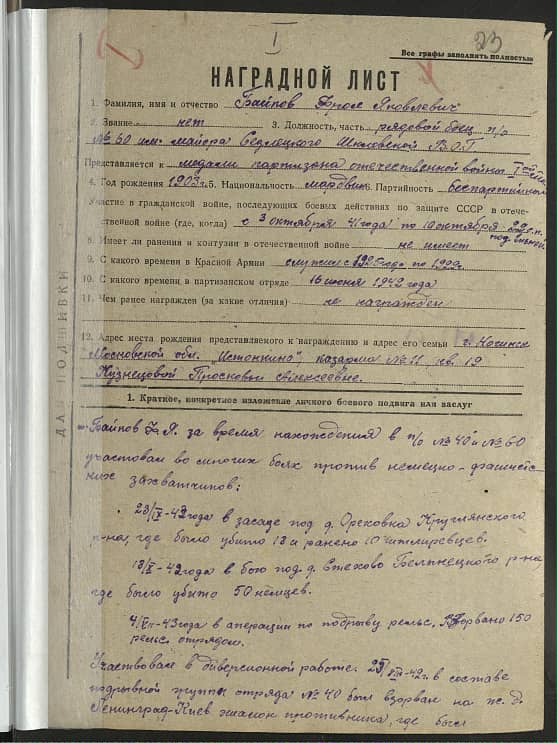 I
23
Все графы заполнять полностью
НАГРАДНОЙ ЛИСТ
1. Фамилия, имя и отчество Баипов Фрол Яковлевич
2. Звание нет 3. Должность, часть рядовой боец п/о
№ 60 им. майора Седлецкого Шкловской В.О.Г
Представляется к медали партизана отечественной войны
4. Год рождения 1903 г. 5. Национальность мордвин 6. Партийность беспартийный
Участие в гражданской войне, последующих боевых действиях по защите СССР и отече-
ственной войне (где, когда) с 3 октября 41 года по 10 октября
8. Имеет ли ранения и контузии в отечественной войне не имеет
9. С какого времени в Красной Армии служил с по
10. С какого времени в партизанском отряде 16 июня 1942 года
11. Чем ранее награжден (за какие отличия) не награжден
12. Адрес места рождения представляемого к награждению и адрес его семьи г. Ногинск
Московской обл. казарма № 11 кв. 19
Кузнецовой Просковьи
ДЛЯ ПОДШИВКИ
1. Краткое, конкретное изложение личного боевого подвига или заслуг
Баипов Ф.Я. за время нахождения в п/о № 40 и № 60
участовал во многих боях против немецко-фашистс-
ких захватчиков:
23/IX-42 года в засаде под д. Ореховка Круглянского
р-на, где было убито 13 и ранено 10
года в бою под д. Белынецкого р-на
где было убито 50 немцев.
года в операции по подрыву рельс. Взорвано 150
рельс отрядом.
Участвовал в диверсионной работе. в составе
подрывной группы отряда № 40 был взорван на ж.д.
Ленинград-Киев эшелон противника, где был